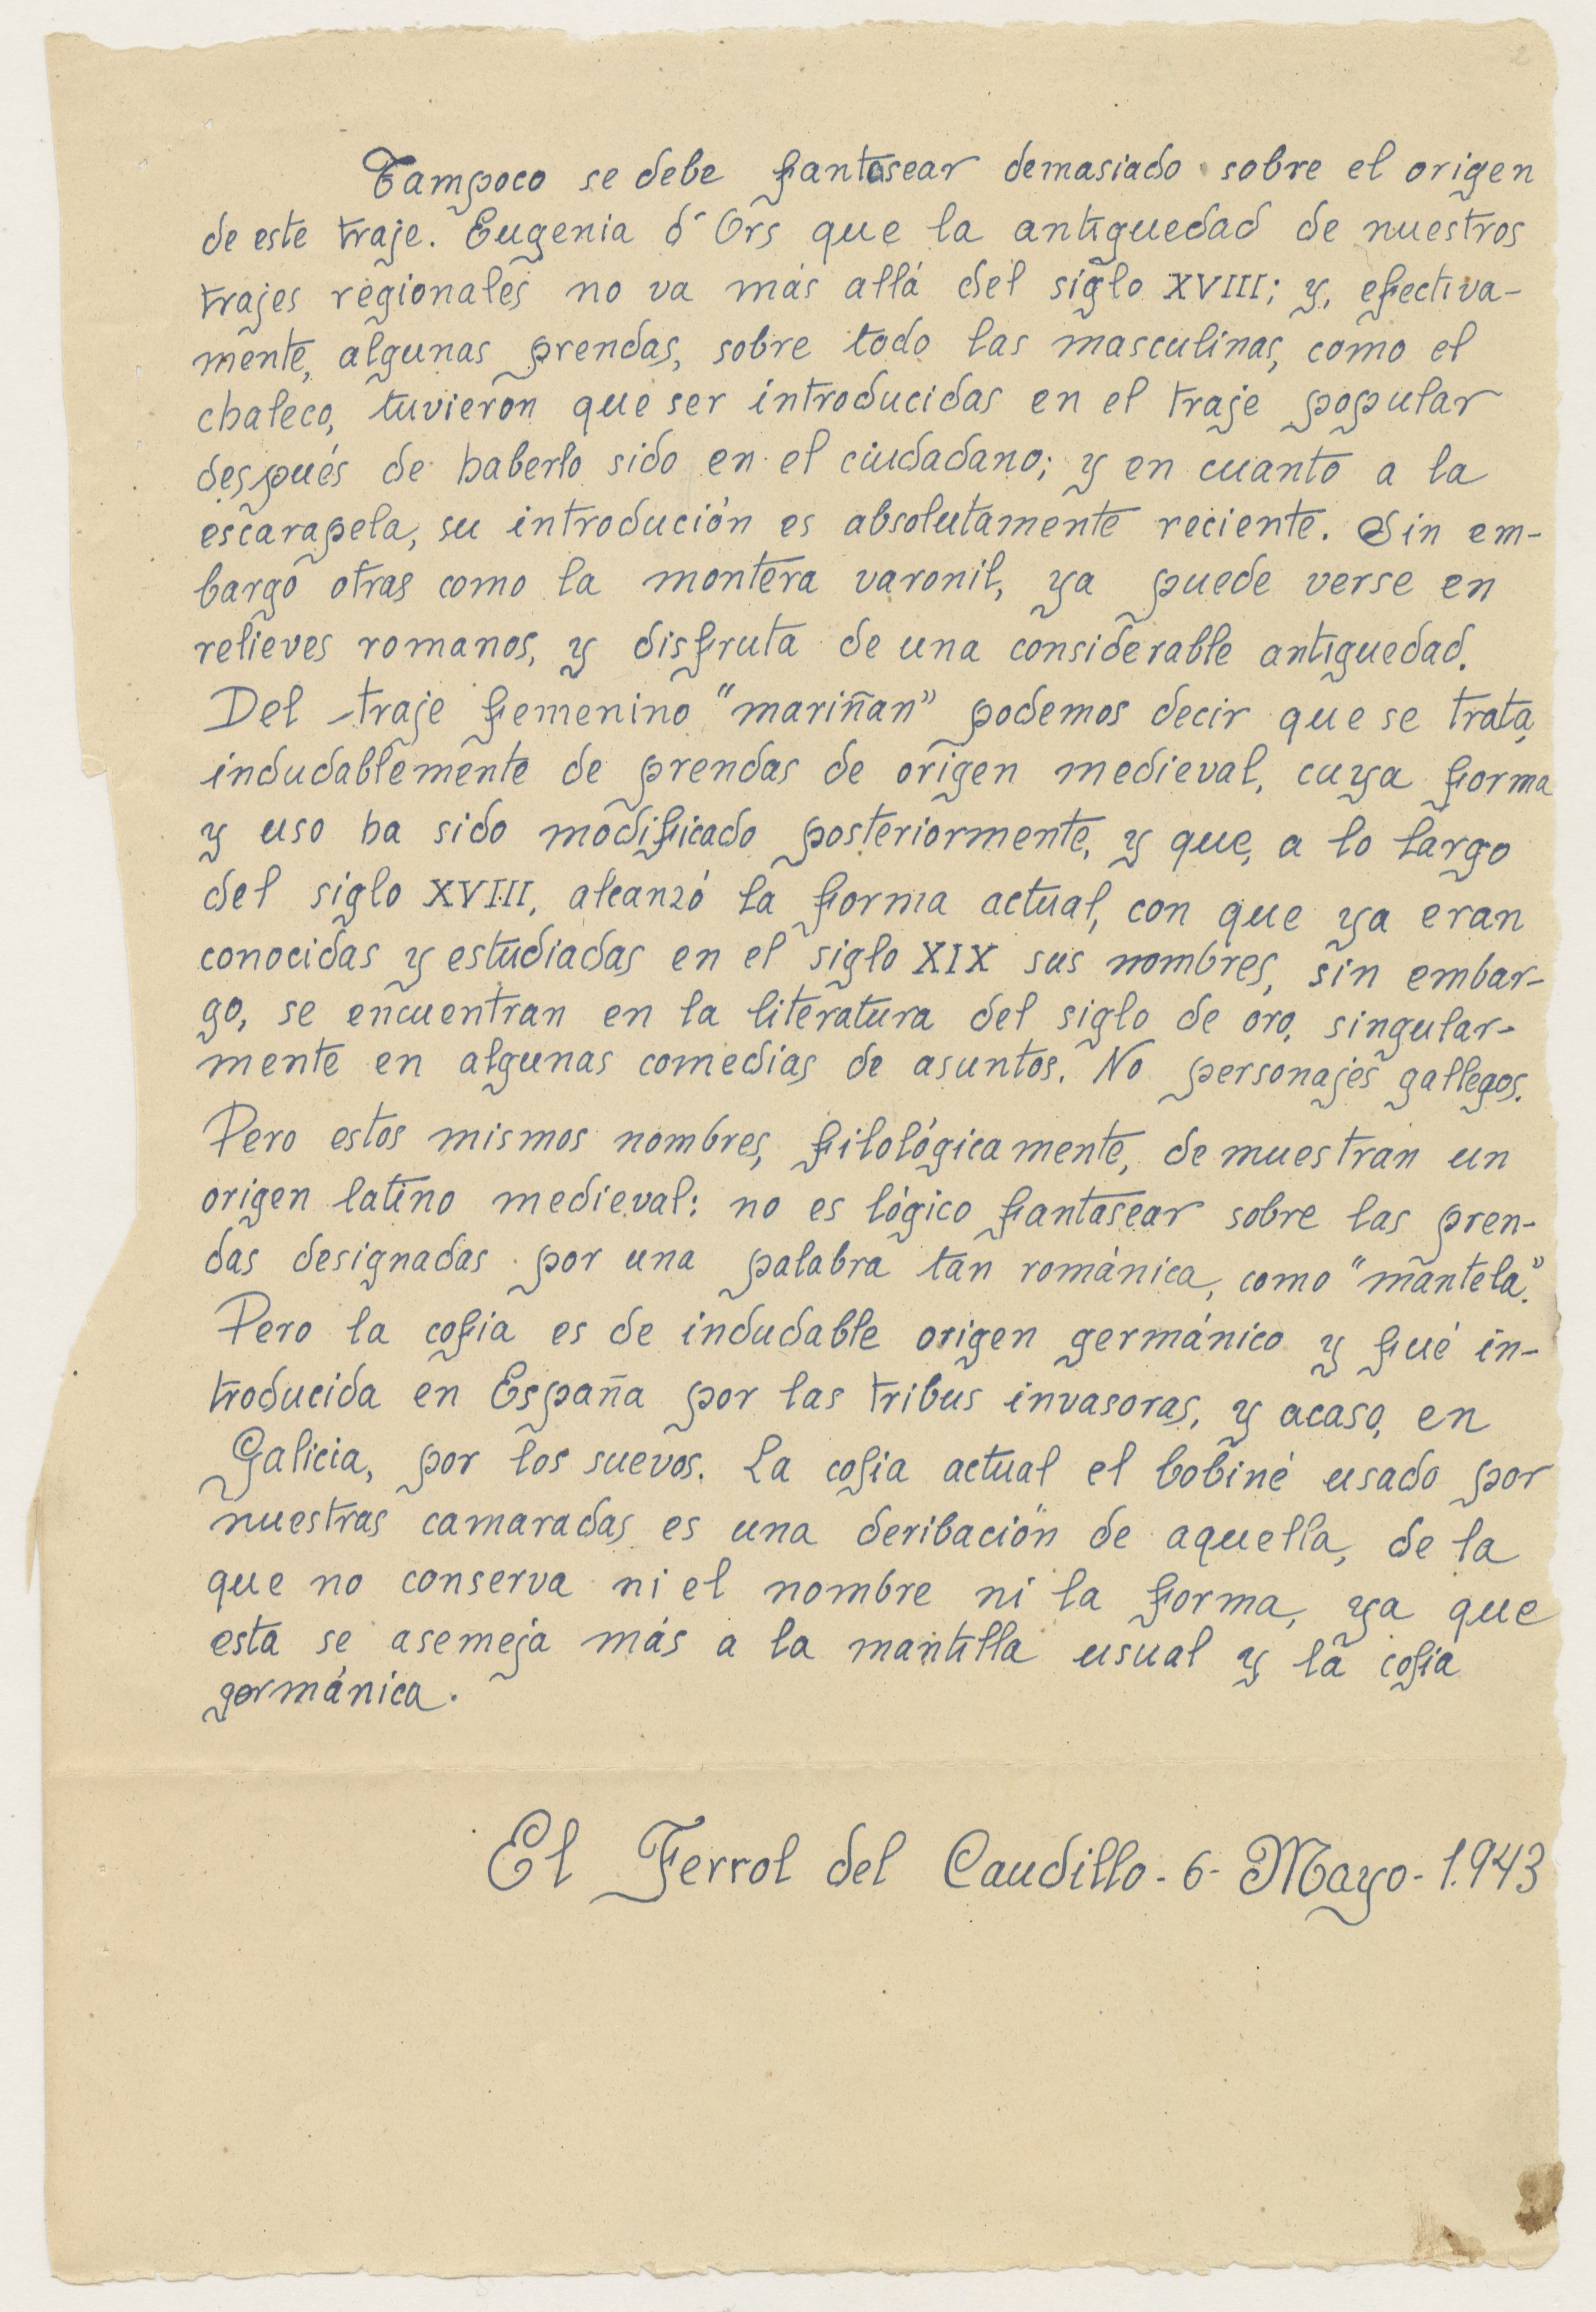 2
Tampoco se debe fantasear demasiado sobre el origen
de este traje. Eugenia d´Ors que la antiguedad de nuestros
trajes regionales no va más allá del siglo XVIII; y, efectiva-
mente, algunas prendas, sobre todo las masculinas, como el
chaleco, tuvieron que ser introducidas en el traje popular
después de haberlo sido en el ciudadano; y en cuanto a la
escarapela, su introdución es absolutamente reciente. Sin em-
bargo otras como la montera varonil, ya puede verse en
relieves romanos, y disfruta de una considerable antiguedad.
Del traje femenino "mariñan" podemos decir que se trata
indudablemente de prendas de origen medieval, cuya forma
y uso ha sido modificado posteriormente, y que, a lo largo
del siglo XVIII, alcanzó la forma actual, con que ya eran
conocidas y estudiadas en el siglo XIX sus nombres, sin embar-
go, se encuentran en la literatura del siglo de oro, singular-
mente en algunas comedias de asuntos. No personajes gallegos.
Pero estos mismos nombres, filológicamente, demuestran un
origen latino medieval: no es lógico fantasear sobre las pren-
das designadas por una palabra tan románica, como "mantela".
Pero la cofia es de indudable origen germánico y fué in-
troducida en España por las tribus invasoras, y acaso, en
Galicia, por los suevos. La cofia actual el bobiné usado por
nuestras camaradas es una deribación de aquella, de la
que no conserva ni el nombre ni la forma, ya que
esta se asemeja más a la mantilla usual y la cofia
germánica.
El Ferrol del Caudillo - 6 - Mayo - 1.943